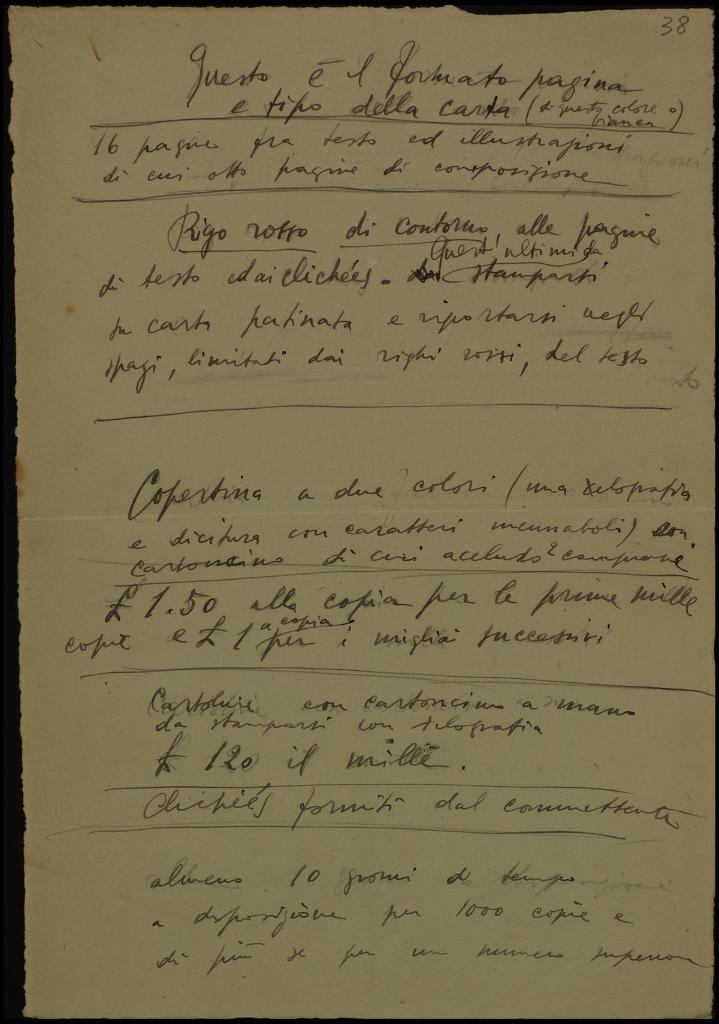 38
Questo è il formato pagina
e tipo della carta (di questo colore o
bianca)
16 pagine fra testo ed illustrazioni
di cui otto pagine di composizione
Rigo rosso di contorno, alle pagine
Quest'ultimi da
di testo ed ai clichées. stamparsi
su carta patinata e riportarsi negli
spazi, limitati dai righi rossi, del testo
Copertina a due colori (una xilografia
e dicitura con caratteri incunaboli) con
cartoncino di cui accludo campione
£ 1.50 alla copia per le prime mille
a copia
copie e £ 1 per i migliai successivi
Cartoline con cartoncino a mano
da stamparsi con xilografia
£ 120 il mille.
Clichéés forniti dal committente
almeno 10 giorni di tempo
a disposizione per 1000 copie e
di più se per un numero superiore